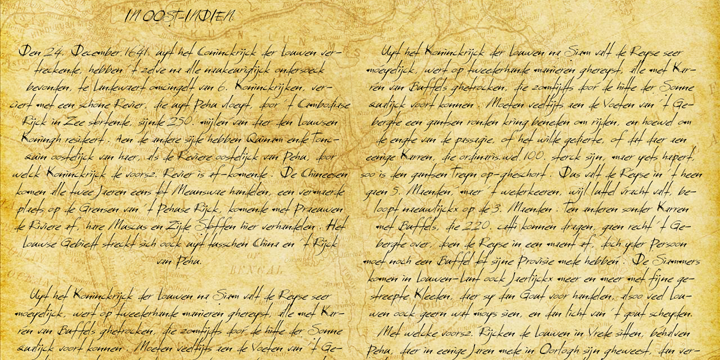 IN OOST-INDIEN.
Den 24. December. 1641. uyt het Coninckrijck der Louwen ver-
treckende, hebben 't zelve na alle naukeurigheijt ondersoeck
bevonden, te Landewaert omcingelt van 6. Koninckrijken, ver-
siert met een schone Revier, die uyt Peha vloeyt, door 't Cambodiase
Rijck in Zee stortende, sijnde 250. mijlen van daer den Louwsen
Koningh resideert. Aen de andere sijde hebben Quinam ende Tonc-
quin oostelijck van haer, als de Reviere oostelijck van Peha, door
welck Koninckrijck de voorsz. Revier is af-komende. De Chineesen
komen alle twee Jaeren eens af Meunswae handelen, een vermaerde
plaets op de Grensen van 't Pehase Rijck, komende met Praeuwen
de Riviere af, hare Muscus en Zijde Stoffen hier verhandelen. Het
Louwse Gebiedt streckt sich oock uyt tusschen China en 't Rijck
van Peha.
Uyt het Koninckrijck der Louwen na Siam valt de Reyse seer
moeyelijck, wert op tweederhande manieren ghereyst, alle met Kar-
ren van Buffels ghetrocken, die zomtijdts door de hitte der Sonne
qualijck voort konnen. Moeten veeltijts aen de Voeten van 't Ge-
Uyt het Koninckrijck der Louwen na Siam valt de Reyse seer
moeyelijck, wert op tweederhande manieren ghereyst, alle met Kar-
ren van Buffels ghetrocken, die zomtijdts door de hitte der Sonne
qualijck voort konnen. Moeten veeltijts aen de Voeten van 't Ge-
bergte een gantsen ronten kring beneten om rijden, en hoewel om
de engte van de passagie, of het wilde gedierte, of dat daer een
eenige Karren, die ordinaris wel 100. sterck sijn, maer yets hapert,
soo is den gantsen Treyn op-gheschort. Dus valt de Reyse in 't heen
gaen 5. Maenden, maer 't wederkeeren, wijl luttel vracht valt, be-
loopt naeuwlijckx op de 3. Maenden. Ten anderen sonder Karren
met Buffels, die 220. catti konnen dragen, gaen recht 't Ge-
bergte over, doen de Reyse in een maent af, doch yder Persoon
moet noch een Buffel tot sijne Provisie mede hebben. De Siammers
komen in Louwen-Lant oock Jaerlijckx meer en meer met fijne ge-
streepte Kleeden, daer sy dan Gout voor handelen, alsoo veel Lou-
wen oock geern wat moys sien, en dan licht van 't gout schepden.
Met welcke voorsz. Rijcken de Louwen in Vrede sitten, behalven
Pehu, daer in eenige Jaren mede in Oorlogh sijn gheweest, dan ver-